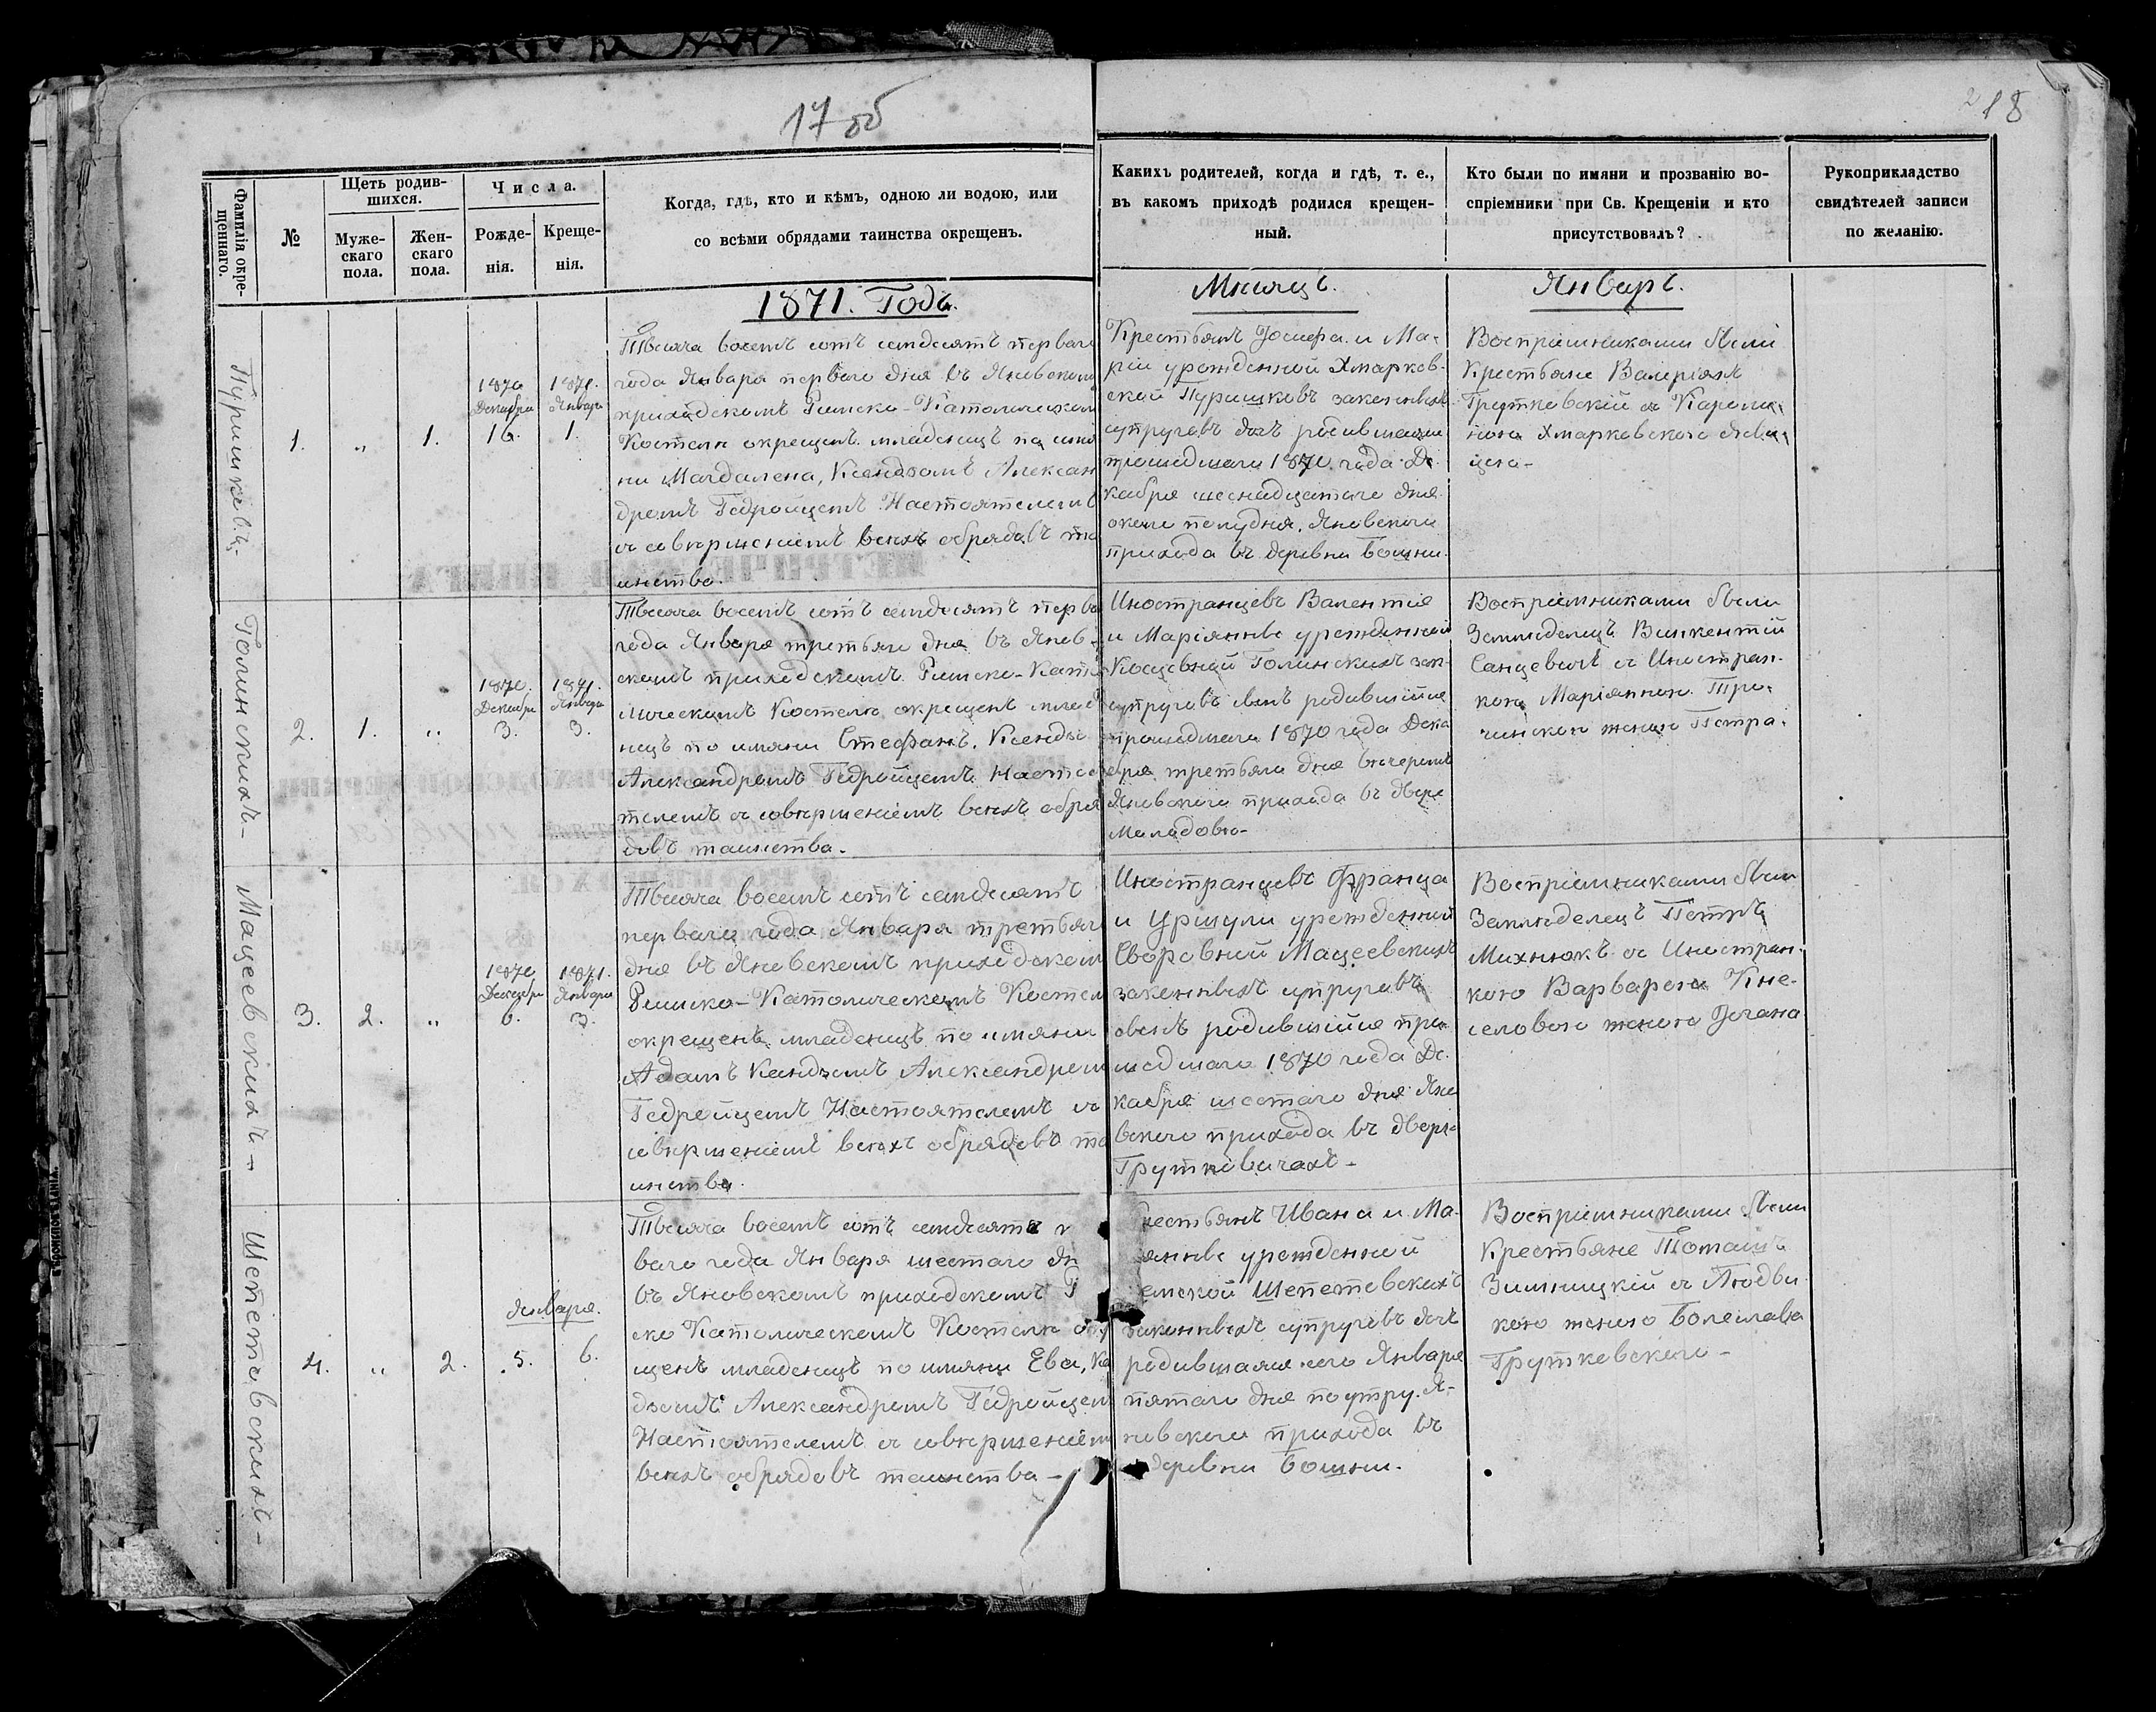 17 об
18
Фамилія окре-
щеннаго.
№
Щетъ родив-
шихся.
Муже-
скаго
пола.
Жен-
скаго
пола.
Числа.
Рожде-
нія.
Креще-
нія.
Когда, гдѣ, кто и кѣмъ, одною ли водою, или
со всѣми обрядами таинства окрещенъ.
Какихъ родителей, когда и гдѣ, т. е.,
въ какомъ приходѣ родился крещен-
ный.
Кто были по имяни и прозванію во-
спріемники при Св. Крещеніи и кто
присутствовалъ?
Рукоприкладство
свидѣтелей записи
по желанію.
1871. Годъ.
Мѣсяцъ.
Январь.
1.
„
1.
1870
Декабря
16.
1871.
Января
1.
Тысяча восемъ сотъ семдесятъ перваго
года Января перваго дня въ Яновскомъ
приходскомъ Римско-Католическомъ
Костелѣ окрещенъ младенецъ по имя
ни Магдалена, Ксендзомъ Алексан
дромъ Гедройцемъ Настоятелемъ
съ совершеніемъ всѣхъ обрядовъ та
инства.
Крестьянъ Іосифа и Ма-
ріи урожденной Хмарков-
ской законныхъ
супруговъ дочь родившаяся
прошедшаго 1870 года Де-
кабря шеснадцатаго дня
около полудня, Яновскаго
прихода въ деревни Бошни.
Воспріемниками были
Крестьяне Валеріянъ
Грутковскій съ Кароли-
ною Хмарковскою
Голинскихъ-
2.
1.
„
1870.
Декабря
3.
1871.
Января
3.
Тысяча восемъ сотъ семдесятъ перва
года Января третьяго дня въ Янов-
скомъ приходскомъ Римско-Като
лическомъ Костелѣ окрещенъ младе
нецъ по имяни Стефанъ, Ксендзо
Александромъ Гедройцемъ Настоя
телемъ съ совершеніемъ всѣхъ обря
довъ таинства.
Иностранцевъ Валентія
и Маріянны урожденной
Косцевной Голинскихъ зак-
супруговъ сынъ родившійся
прошедшаго 1870 года Дека
бря третьяго дня вечеромъ
Яновскаго прихода въ дворѣ
Воспріемниками были
Земледелецъ Викентій
Санцевичъ съ Иностран-
кою Маріянною
женою Петра.
Мацеевскихъ-
3.
2.
„
1870
Декабря
6.
1871.
Января
3.
Тысяча восемъ сотъ семдесятъ
перваго года Января третьяго
дня въ Яновскомъ приходскомъ
Римско-Католическомъ Костел
окрещенъ младенецъ по имяни
Адамъ Ксендзомъ Александромъ
Гедройцемъ Настоятелемъ съ
совершеніемъ всѣхъ обрядовъ та
инства.
Иностранцевъ Франца
и Уршули урожденной
Мацеевскихъ
законныхъ супруговъ
сынъ родившійся про
шедшаго 1870 года Де-
кабря шестаго дня Яно
вскаго прихода въ дворѣ
Грутковичахъ-
Воспріемниками были
Земледелецъ Петръ
Михнюкъ съ Иностран-
кою Варварою Кне-
женою Іогана
Шепетовскихъ-
4.
„
2.
Января.
5.
6.
Тысяча восемъ сотъ семдесятъ п
ваго года Января шестаго дн
въ Яновскомъ приходскомъ Р
ско Католическомъ Костелѣ окр
щенъ младенецъ по имяни Ева, Ксе
дзомъ Александромъ Гедройцем
Настоятелемъ съ совершеніем
всѣхъ обрядовъ таинства-
рестьянъ Ивана и Ма-
янны урожденной
емской Шепетовскихъ
законныхъ супруговъ дочь
родившаяся сего Января
пятаго дня по утру. Я-
новскаго прихода въ
деревни Бошни.
Воспріемниками были
Крестьяне Томашъ
Зимницкій съ Людви
кою женою Болеслава
Грутковскаго-